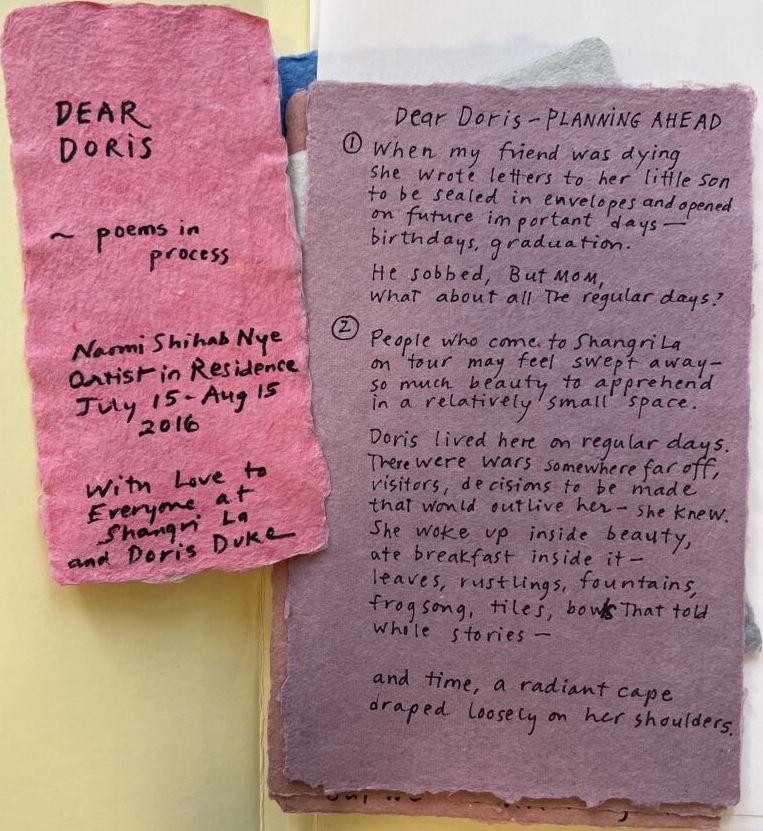 DEAR
DORIS
~ poems in
process
Naomi Shihab Nye
Artist in Residence
July 15-Aug 15
2016
With Love to
Everyone at
Shangri La
and Doris Duke
Dear Doris - PLANNING AHEAD
① When my friend was dying
she wrote letters to her little son
to be sealed in envelopes and opened
on future important days —
birthdays, graduation.
He sobbed, But MOM,
what about all The regular days?
② People who come to Shangri La
on tour may feel swept away—
so much beauty to apprehend
in a relatively small space.
Doris lived here on regular days.
There were wars somewhere far off,
visitors, decisions to be made
that would outlive her— she knew.
She woke up inside beauty,
ate breakfast inside it—
leaves, rustlings, fountains,
frogsong, tiles, bowls That told
whole stories —
and time, a radiant cape
draped loosely on her shoulders.